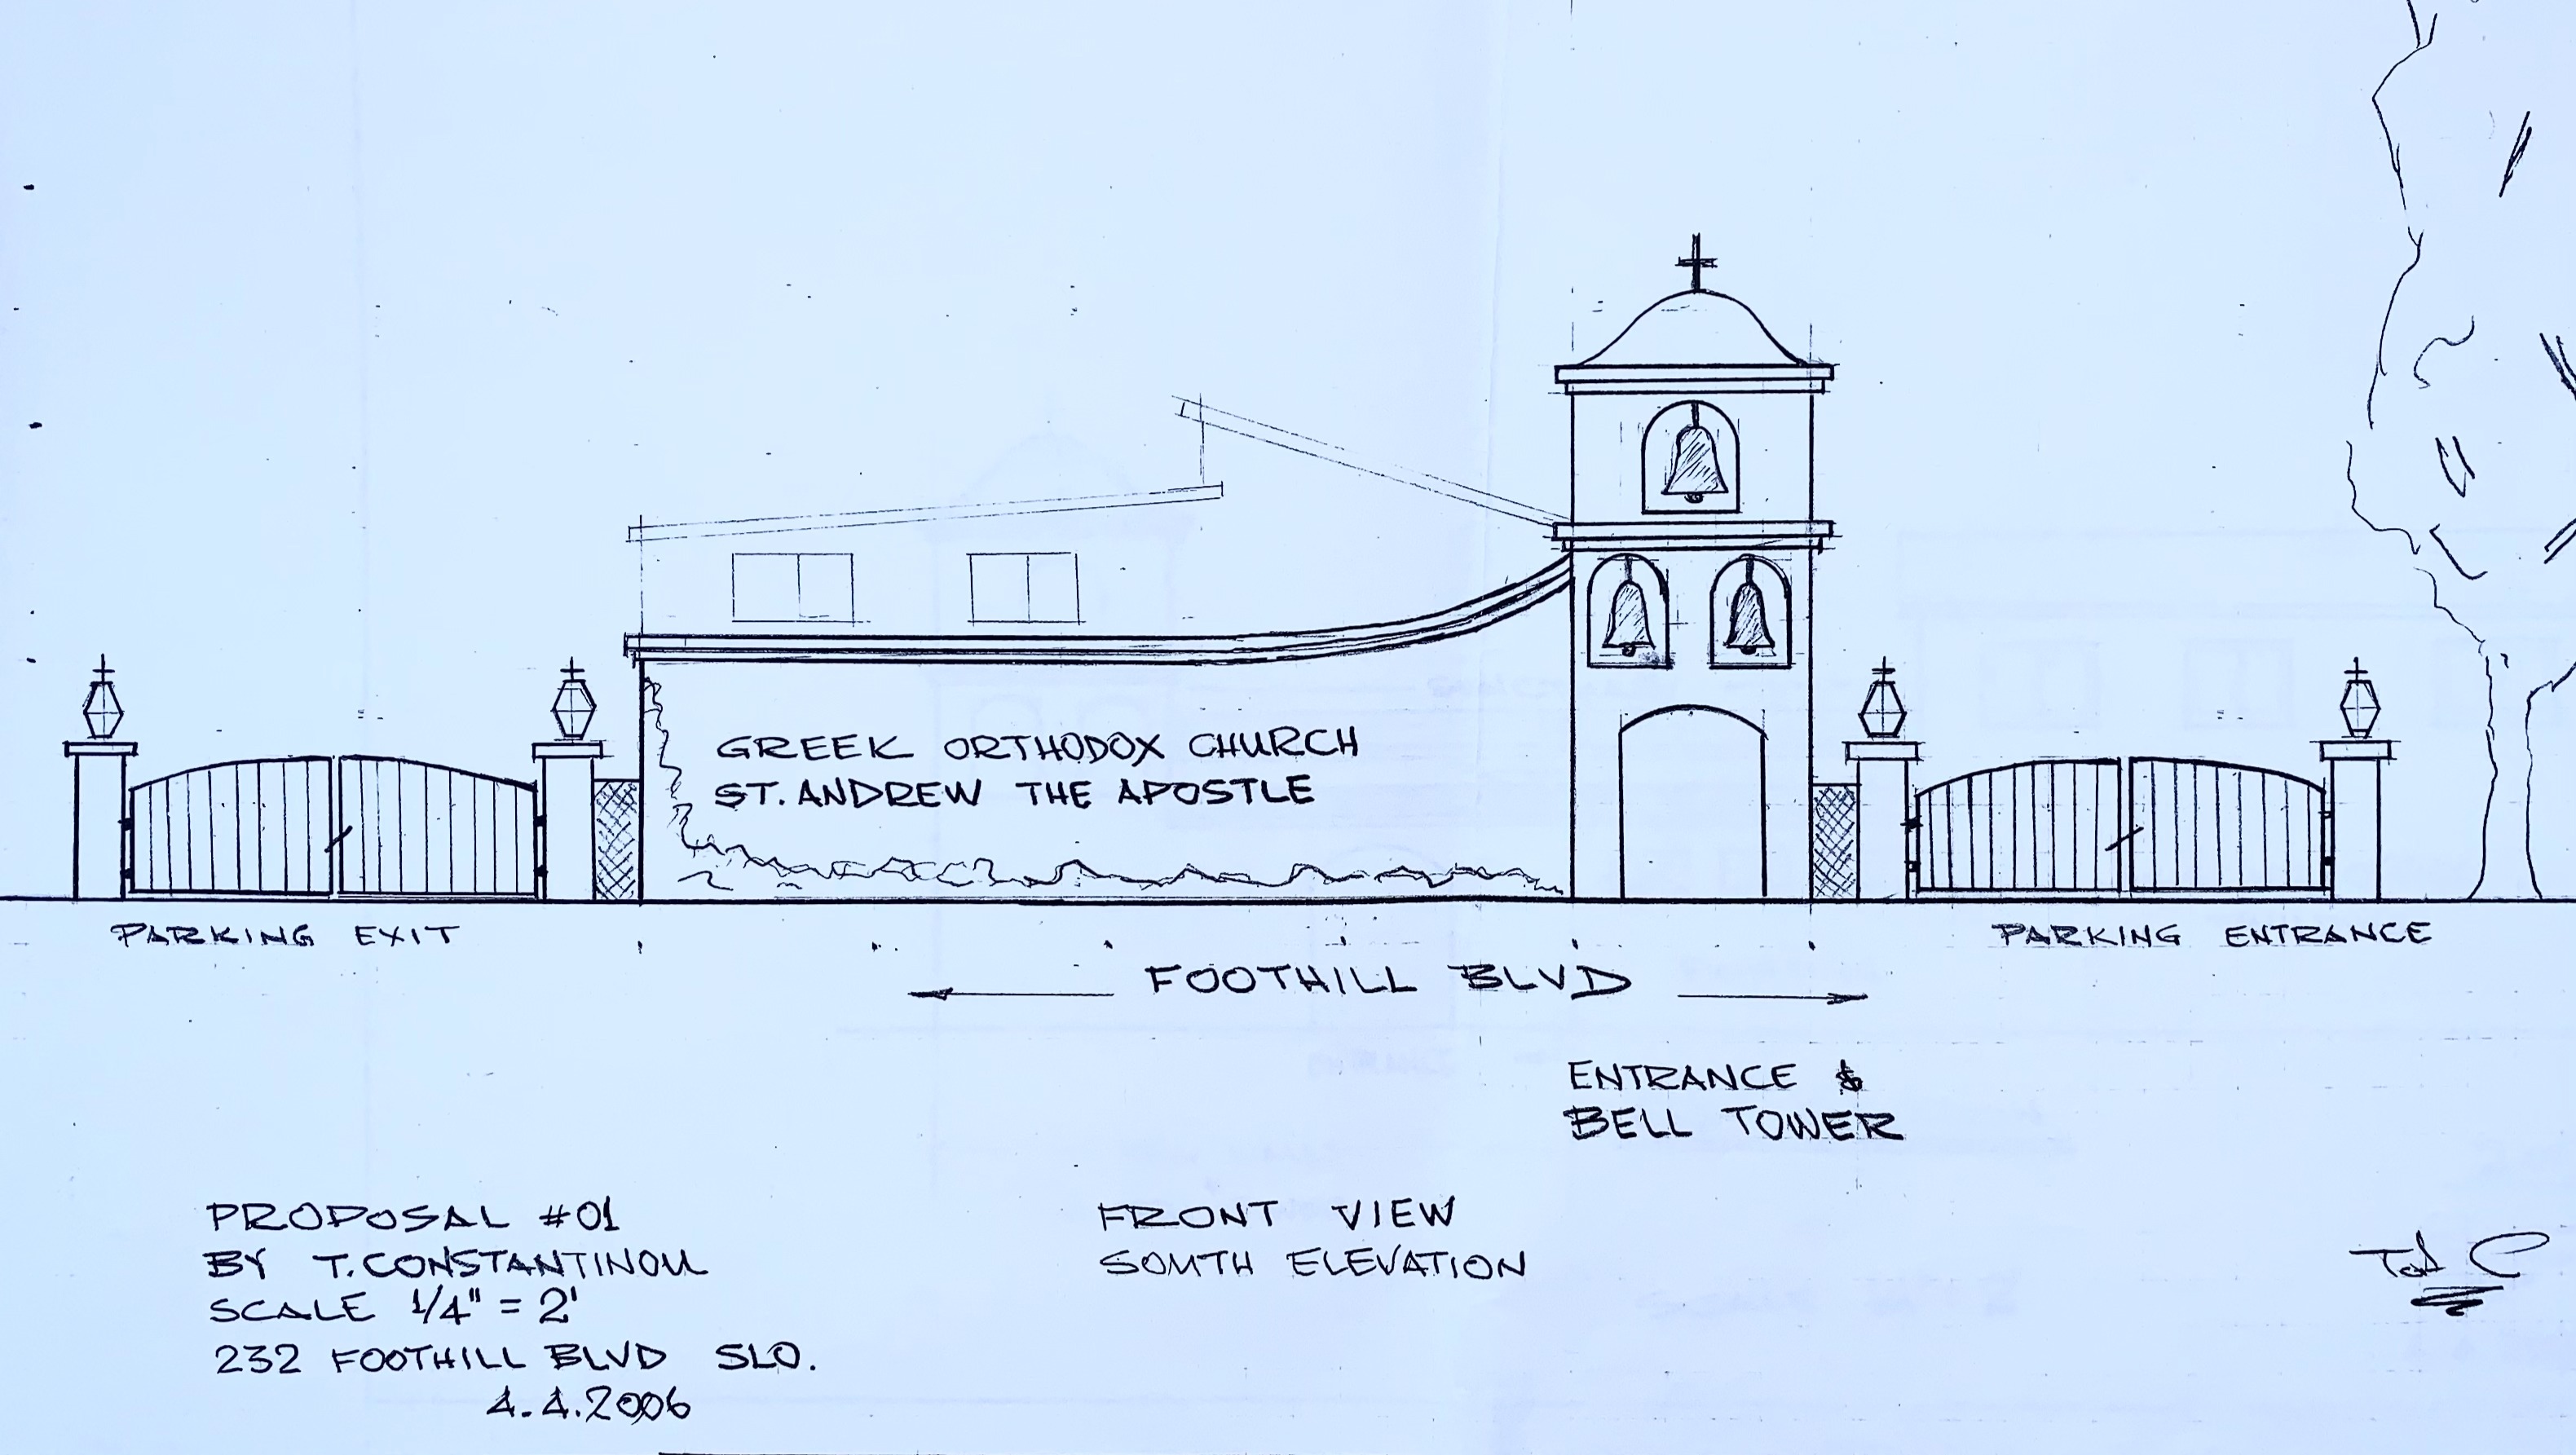 GREEK ORTHODOX CHURCH
ST. ANDREW THE APOSTLE
PARKING EXIT
PARKING ENTRANCE
FOOTHILL BLVD
ENTRANCE &
BELL TOWER
PROPOSAL #01
BY T. CONSTANTINOU
SCALE 1/4" = 2'
232 FOOTHILL BLVD SLO.
4.4.2006
FRONT VIEW
SOUTH ELEVATION